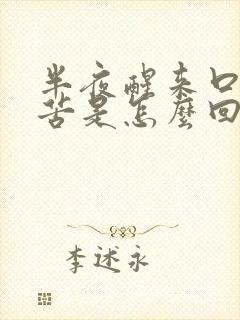 半夜醒来口
苦是怎麼回
李述永